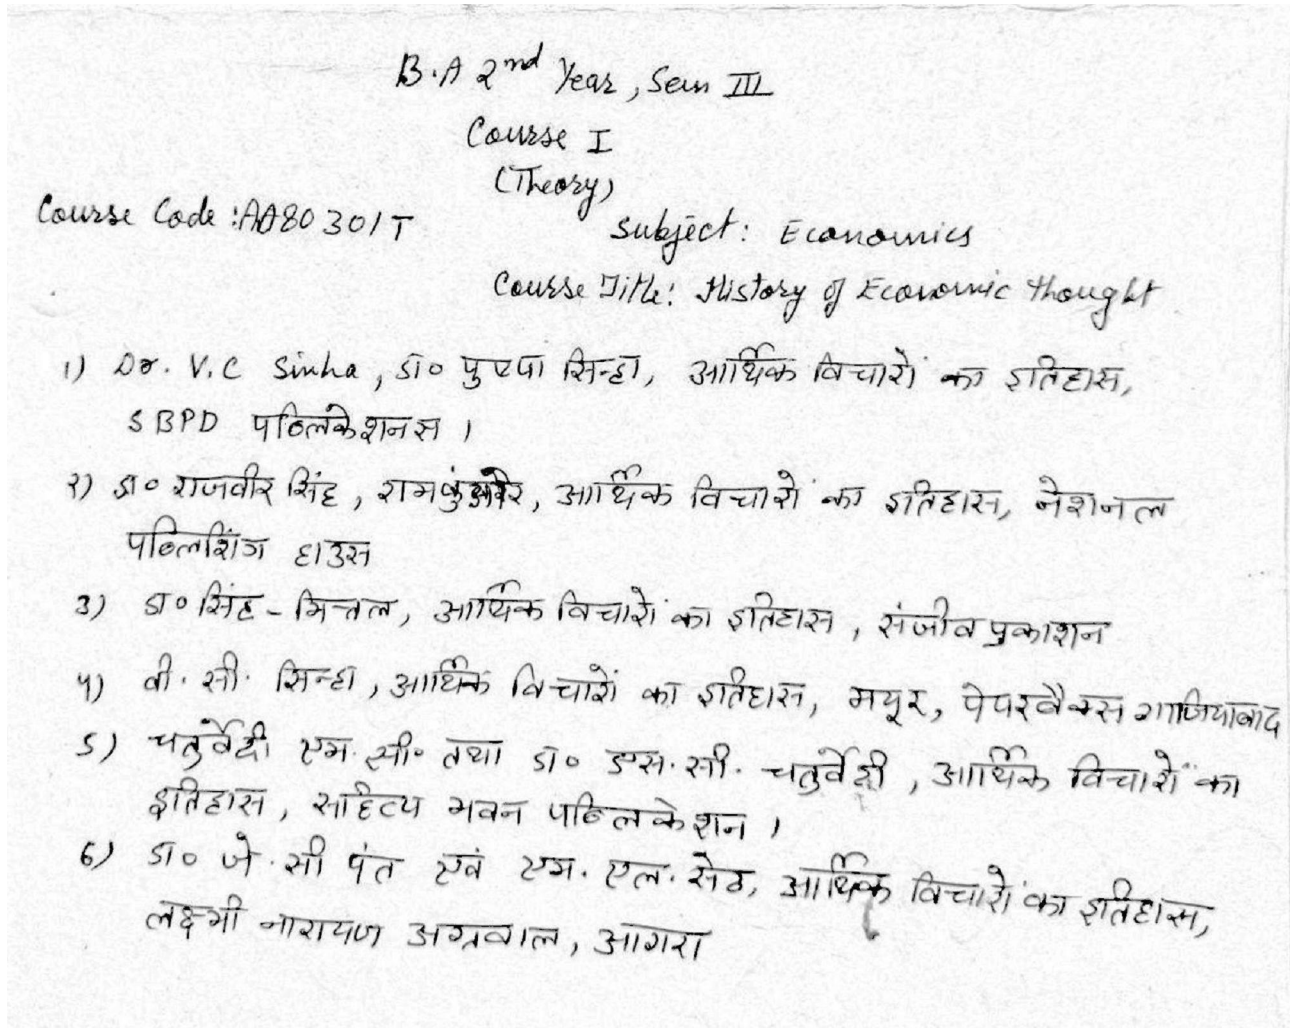 B.A 2nd Year, Sem III
Course I
(Theory)
Course Code: AA80301T
Subject: Economics
Course Title: History of Economic thought
1) Dr. V.C Sinha, डा० पुष्पा सिन्हा, आर्थिक विचारों का इतिहास,
SBPD पब्लिकेशनस ।
२) डा० राजवीर सिंह, आर्थिक विचारों का इतिहास, नेशनल
पब्लिशिंग हाउस
3) डा० सिंह - मित्तल, आर्थिक विचारों का इतिहास, संजीव प्रकाशन
4) वी. सी. सिन्हा, आर्थिक विचारों का इतिहास, मयूर, पेपरबैक्स गाजियाबाद
5) चतुर्वेदी एम. सी० तथा डा० एस. सी. चतुर्वेदी, आर्थिक विचारों का
इतिहास, साहित्य भवन पब्लिकेशन ।
6) डा० जे. सी पंत एवं एम. एल. सेठ, आर्थिक विचारों का इतिहास,
लक्ष्मी नारायण अग्रवाल, आगरा